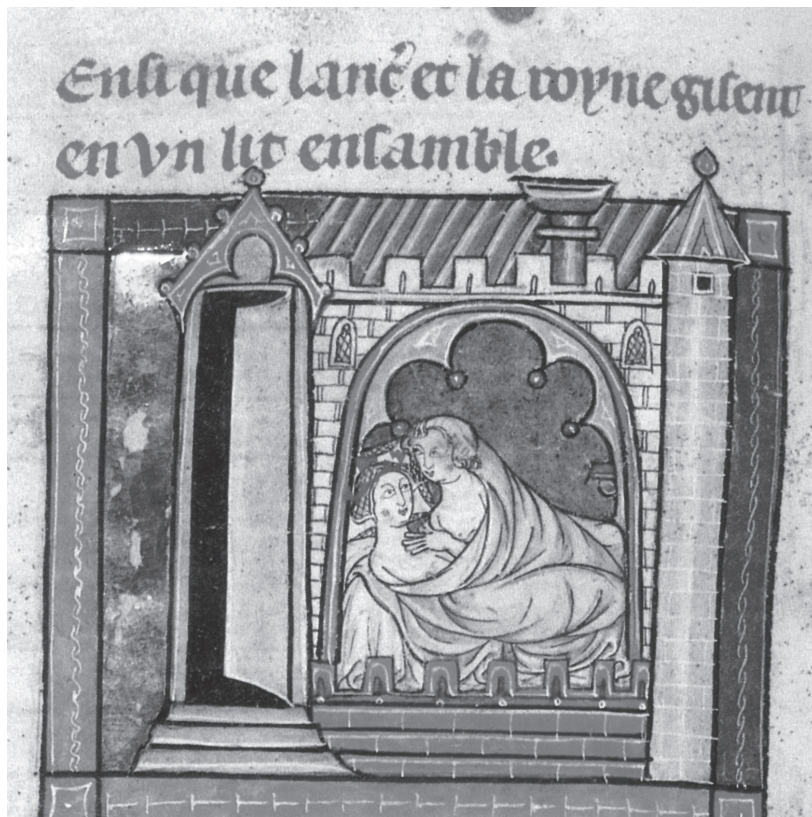 Ensi que lanc̉ et la royne gisent
en vn lit ensamble.